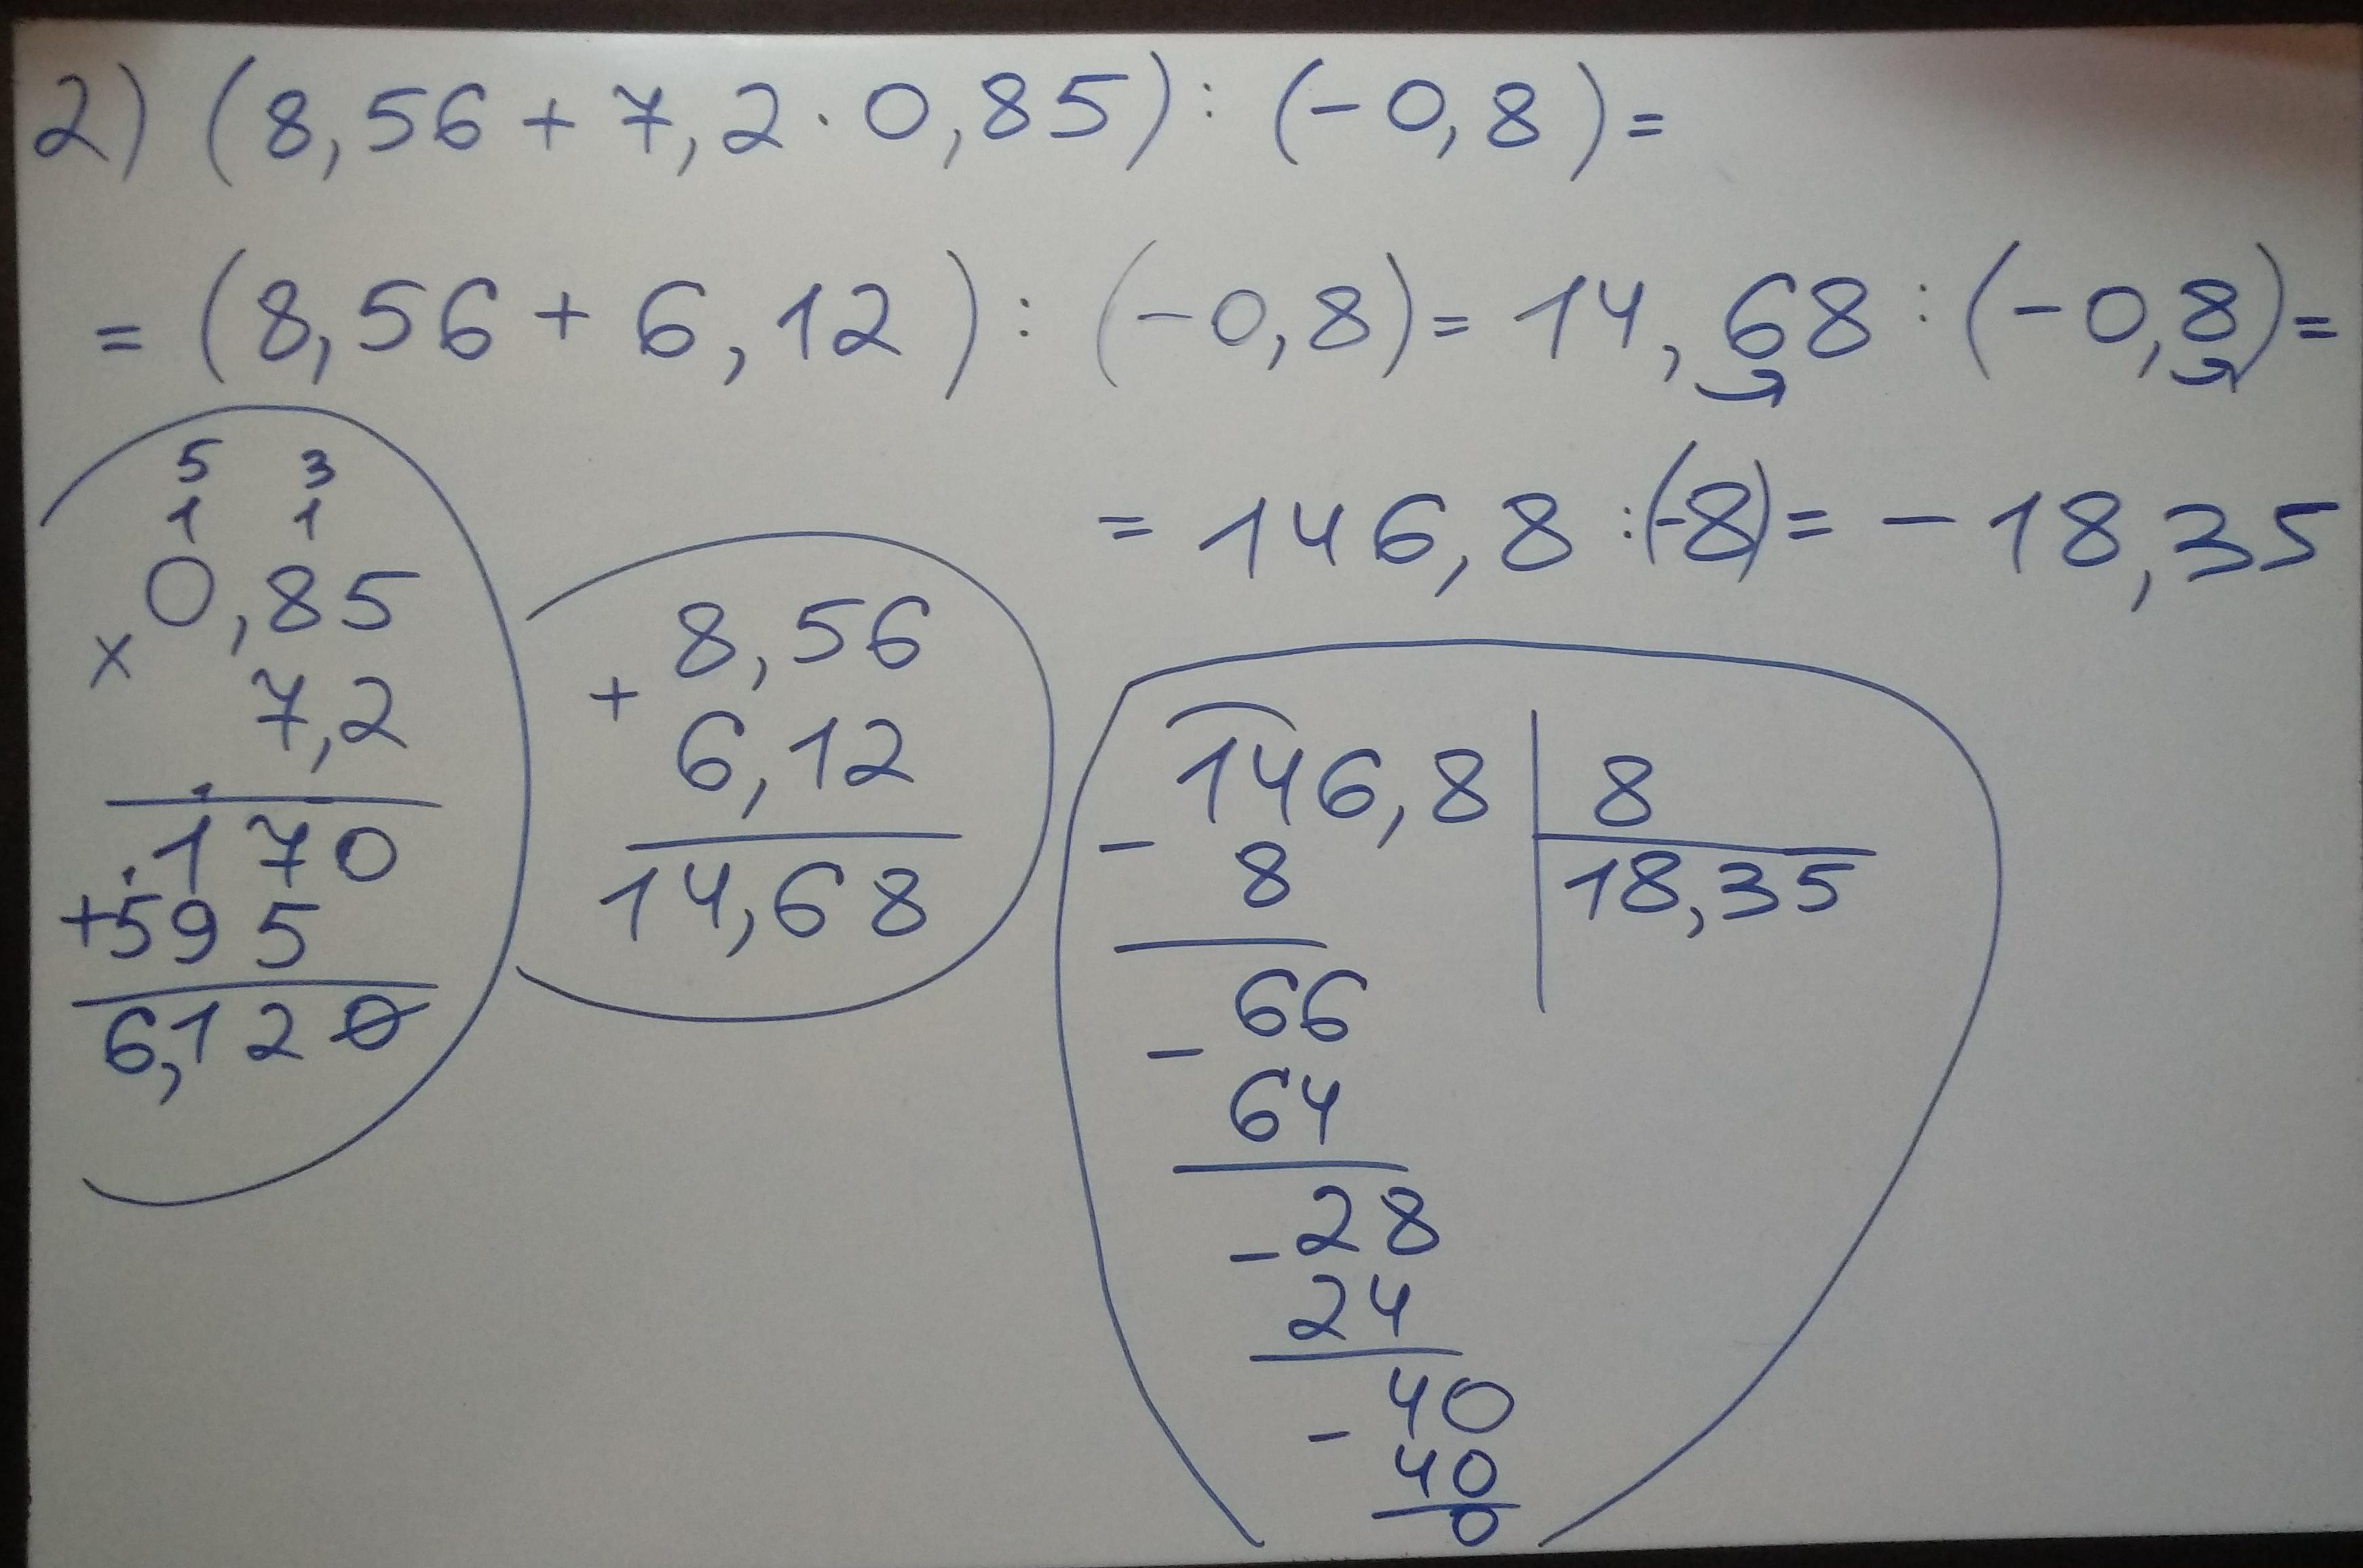 2) (8,56 + 7,2 · 0,85) : (-0,8) =
= (8,56 + 6,12) : (-0,8) = 14,68 : (-0,8) =
= 146,8 : (-8) = - 18,35
5 3
1 1
0,85
x
7,2
170
+595
6,120
8,56
+
6,12
14,68
146,8 | 8
- 8
18,35
66
-
64
- 28
24
40
-
40
0